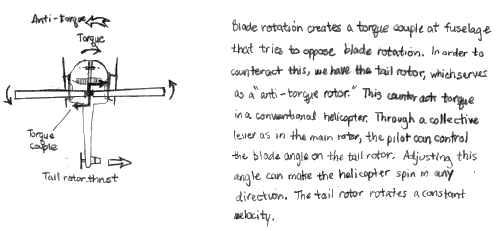 Anti-torque
Torque
Torque
couple
Tail rotor thrust
Blade rotation creates a torque couple at fuselage
that tries to oppose blade rotation. In order to
counteract this, we have the tail rotor, which serves
as a "anti-torque rotor." This counteract torque
in a conventional helicopter. Through a collective
lever as in the main rotor, the pilot can control
the blade angle on the tail rotor. Adjusting this
angle can make the helicopter spin in any
direction. The tail rotor rotates a constant
velocity.